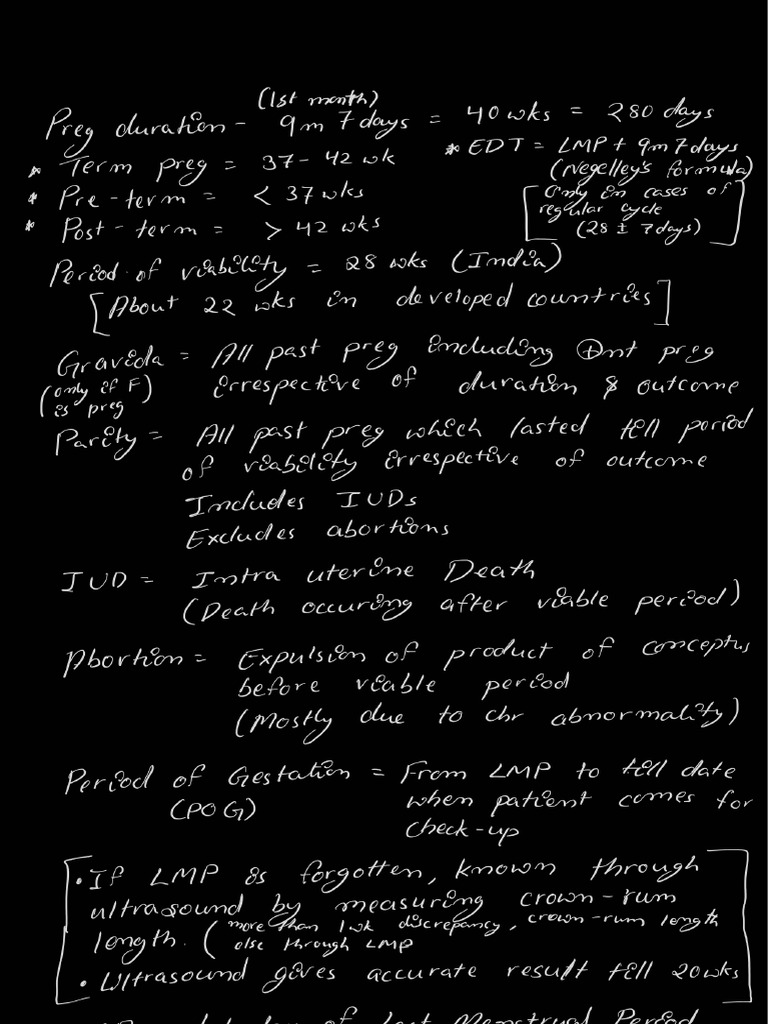 (1st month)
Preg duration - 9m 7days = 40 wks = 280 days
* Term preg = 37 - 42 wk
* EDT = LMP + 9m 7days
(Negelley's formula)
* Pre-term = < 37 wks
[Only in cases of
regular cycle
(28 ± 7days)]
* Post-term = > 42 wks
Period of viability = 28 wks (India)
[About 22 wks in developed countries]
Gravida = All past preg including ⊕nt preg
(only if F is preg)
irrespective of duration & outcome
Parity = All past preg which lasted till period
of viability irrespective of outcome
Includes IUDs
Excludes abortions
IUD = Intra uterine Death
(Death occuring after viable period)
Abortion = Expulsion of product of conceptus
before viable period
(Mostly due to chr abnormality)
Period of Gestation = From LMP to till date
(POG) when patient comes for
check-up
• If LMP is forgotten, known through
ultrasound by measuring crown-rum
length. (more than 1wk discrepancy, crown-rum length
else through LMP
• Ultrasound gives accurate result till 20wks
of Last Menstrual Period